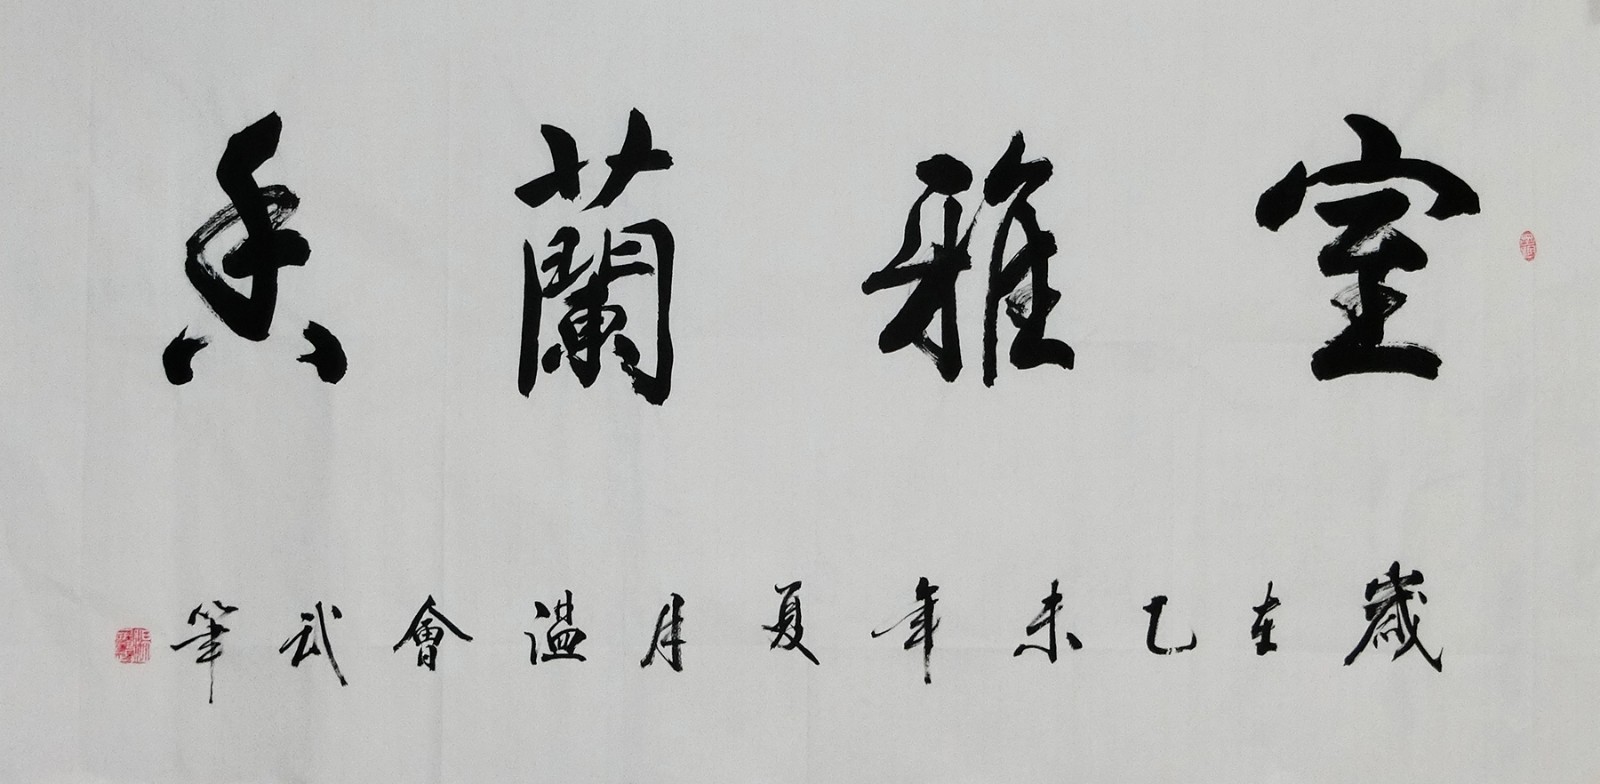 室雅蘭香
歲在乙未年夏月溫會武筆